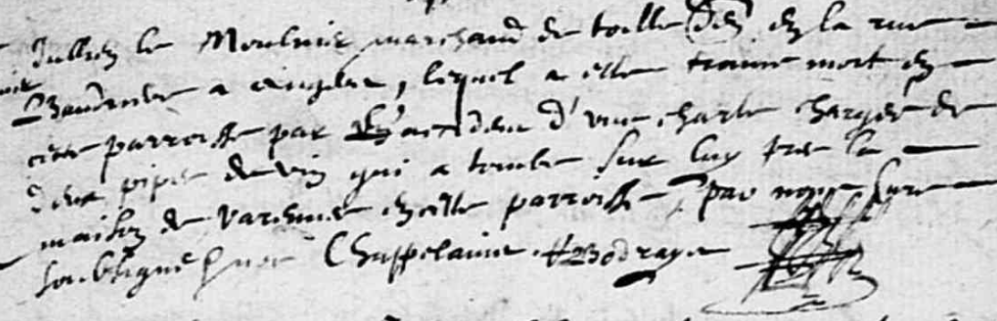 Jullien le Moulnier marchand de toille den en la rue
Baudriere a Angers, lequel a este trouve mort en
ceste parroisse par l'accident d'une charte chargee de
deux pipes de vin qui a tombe sur luy pres la
maison de Varenne en ceste parroisse, par nous cure
soubsigne Chappelainne